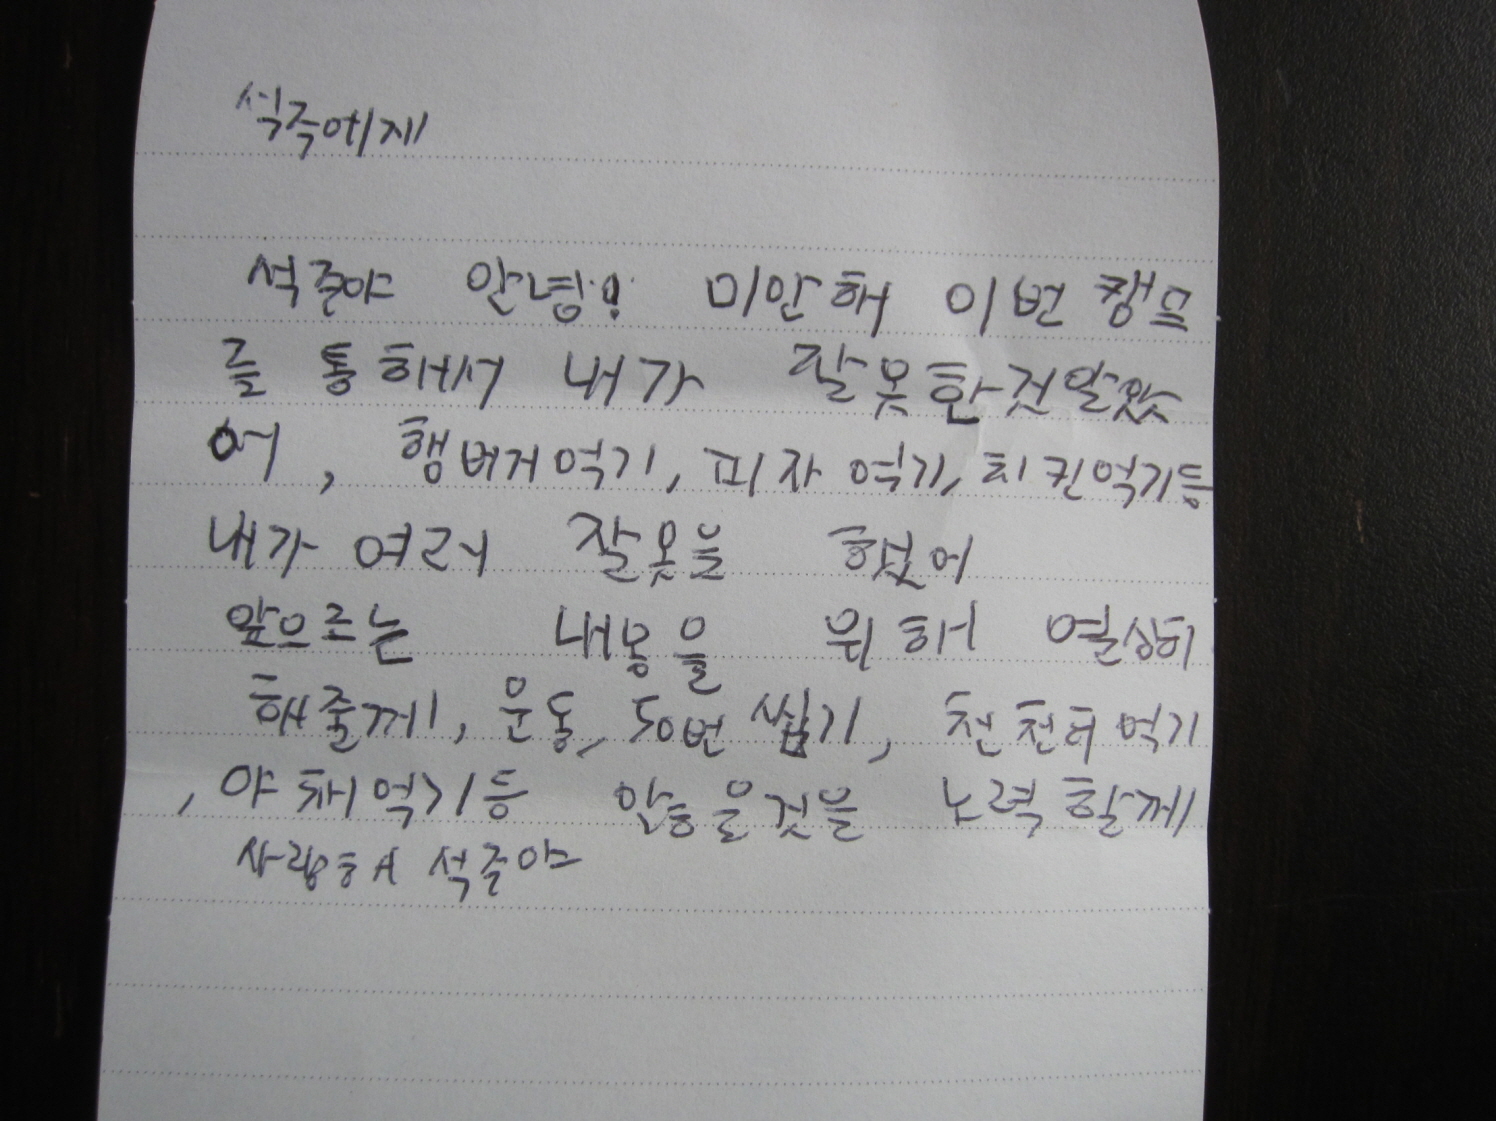 석주에게
석주야 안녕! 미안해 이번캠프
를 통해서 내가 잘못한것알았
어, 햄버거먹기, 피자 먹기, 치킨먹기등
내가 여러 잘못을 했었어
앞으로는 내몸을 위해 열심히
해줄께, 운동, 50번 씹기, 천천히 먹기
, 야채먹기등 노력할께
사랑해 석주야